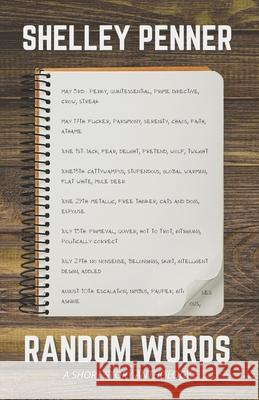 SHELLEY PENNER
MAY 3RD : PERKY, QUINTESSENTIAL, PRIME DIRECTIVE,
CROW, STREAK
MAY 17TH PUCKER, PARSIMONY, SERENITY, CHAOS, FAITH,
ATHAME
JUNE 1ST JACK, FEAR, DELIGHT, PRETEND, WOLF, TWILIGHT
JUNE15TH CATTYWAMPUS, STUPENDOUS, GLOBAL WARMING,
FLAT WHITE, MULE DEER
JUNE 29TH METALLIC, FREE TANKER, CATS AND DOGS,
ESPOUSE
JULY 13TH PRIMEVAL, QUIVER, HOT TO TROT, KITENKUNG,
POLITICALLY CORRECT
JULY 27TH NO NONSENSE, BELONGINGS, SKIRT, INTELLIGENT
DESIGN, ADDLED
AUGUST 10TH ESCALATION, NIMBUS, PAUPER,
ASININE
RANDOM WORDS
A SHORT STORY ANTHOLOGY